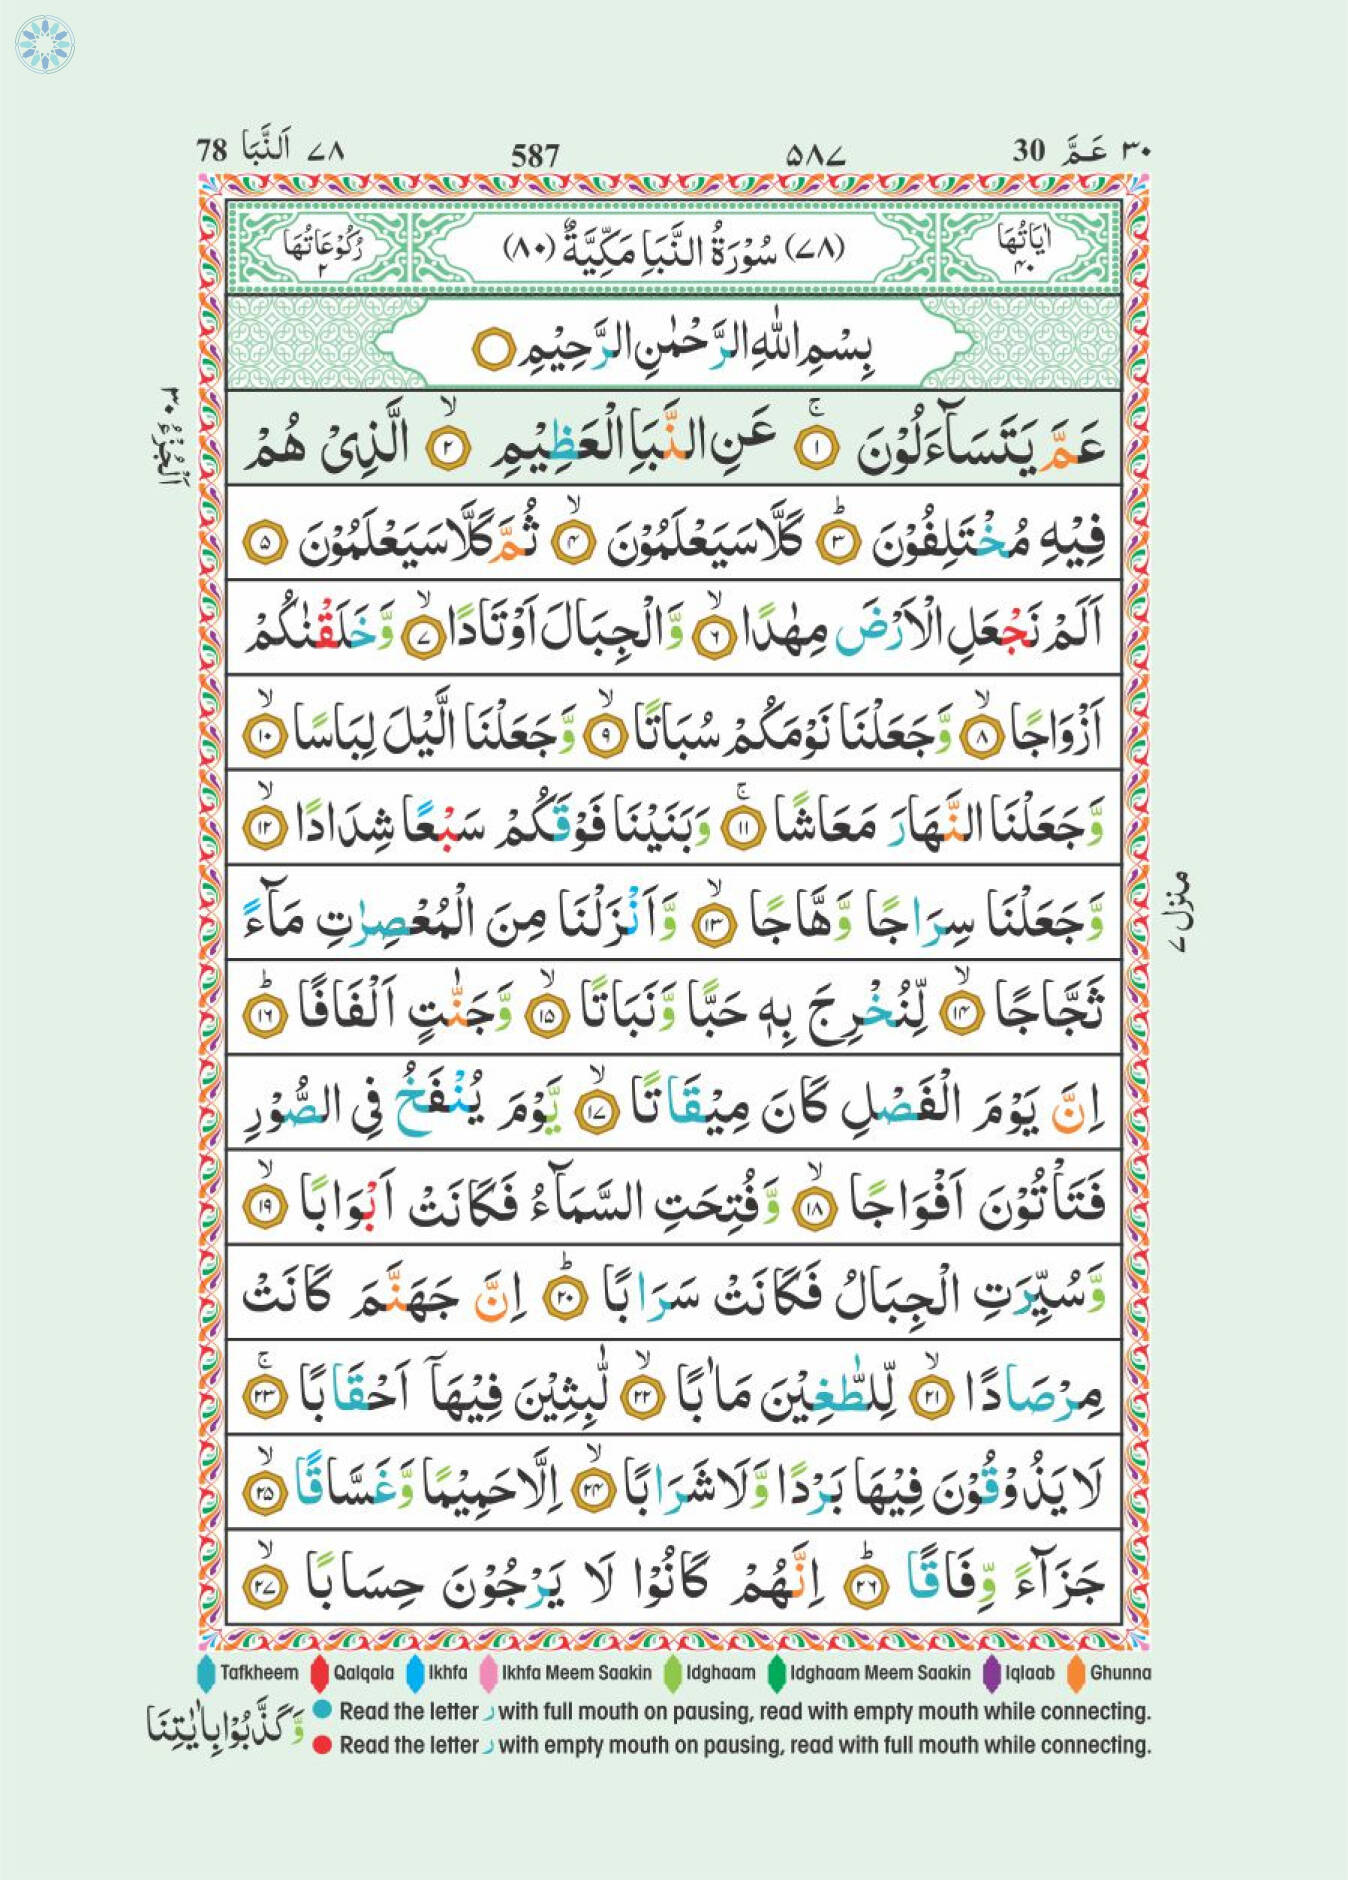 78 اَلنَّبَا ٧٨ 587 ۵۸۷ 30 عَمَّ ٣٠
اٰيَاتُهَا ۴۰ (٧٨) سُوْرَةُ النَّبَاِ مَكِّيَّةٌ (٨٠) رُكُوْعَاتُهَا ٢
بِسْمِ اللّٰهِ الرَّحْمٰنِ الرَّحِيْمِ
عَمَّ يَتَسَآءَلُوْنَ ۚ ١ عَنِ النَّبَاِ الْعَظِيْمِ ۙ ٢ الَّذِىْ هُمْ
فِيْهِ مُخْتَلِفُوْنَ ؕ ٣ كَلَّا سَيَعْلَمُوْنَ ۙ ۴ ثُمَّ كَلَّا سَيَعْلَمُوْنَ ۵
اَلَمْ نَجْعَلِ الْاَرْضَ مِهٰدًا ۙ ۶ وَّالْجِبَالَ اَوْتَادًا ۙ ٧ وَّخَلَقْنٰكُمْ
اَزْوَاجًا ۙ ٨ وَّجَعَلْنَا نَوْمَكُمْ سُبَاتًا ۙ ٩ وَّجَعَلْنَا الَّيْلَ لِبَاسًا ۙ ١٠
وَّجَعَلْنَا النَّهَارَ مَعَاشًا ۚ ١١ وَبَنَيْنَا فَوْقَكُمْ سَبْعًا شِدَادًا ۙ ١٢
وَّجَعَلْنَا سِرَاجًا وَّهَّاجًا ۙ ١٣ وَّاَنْزَلْنَا مِنَ الْمُعْصِرٰتِ مَآءً
ثَجَّاجًا ۙ ١۴ لِّنُخْرِجَ بِهٖ حَبًّا وَّنَبَاتًا ۙ ١۵ وَّجَنّٰتٍ اَلْفَافًا ؕ ١۶
اِنَّ يَوْمَ الْفَصْلِ كَانَ مِيْقَاتًا ۙ ١٧ يَّوْمَ يُنْفَخُ فِى الصُّوْرِ
فَتَاْتُوْنَ اَفْوَاجًا ۙ ١٨ وَّفُتِحَتِ السَّمَآءُ فَكَانَتْ اَبْوَابًا ۙ ١٩
وَّسُيِّرَتِ الْجِبَالُ فَكَانَتْ سَرَابًا ؕ ٢٠ اِنَّ جَهَنَّمَ كَانَتْ
مِرْصَادًا ۙ ٢١ لِّلطّٰغِيْنَ مَاٰبًا ۙ ٢٢ لّٰبِثِيْنَ فِيْهَآ اَحْقَابًا ۚ ٢٣
لَا يَذُوْقُوْنَ فِيْهَا بَرْدًا وَّلَا شَرَابًا ۙ ٢۴ اِلَّا حَمِيْمًا وَّغَسَّاقًا ۙ ٢۵
جَزَآءً وِّفَاقًا ؕ ٢۶ اِنَّهُمْ كَانُوْا لَا يَرْجُوْنَ حِسَابًا ۙ ٢٧
اَلْجُزْءُ ٣٠
منزل ٧
Tafkheem Qalqala Ikhfa Ikhfa Meem Saakin Idghaam Idghaam Meem Saakin Iqlaab Ghunna
Read the letter ر with full mouth on pausing, read with empty mouth while connecting.
Read the letter ر with empty mouth on pausing, read with full mouth while connecting.
وَّكَذَّبُوْا بِاٰيٰتِنَا